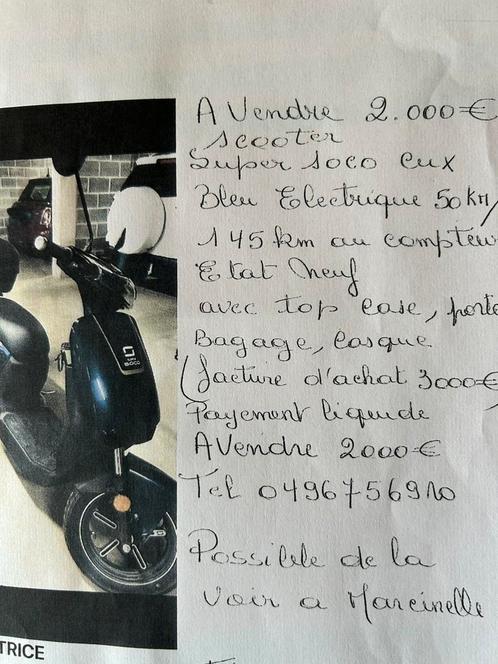 A Vendre 2.000€
scooter
Super soco cux
Bleu Electrique 50 KM/
145 km au compteu
Etat Neuf
avec top case, porte
Bagage, Casque
(facture d'achat 3000€)
Payement liquide
A Vendre 2000€
Tél 0496756910
Possible de la
voir a Marcinelle
S
SUPER
SOCO
TRICE